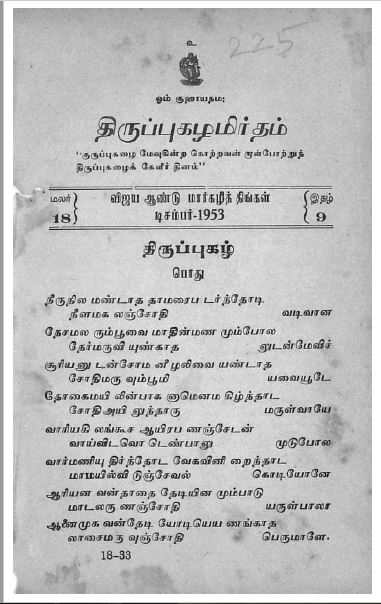 உ
225
ஓம் குஹாயநம:
திருப்புகழமிர்தம்
"குருப்புகழை மேவுகின்ற கொற்றவன் றாள்போற்றுந்
திருப்புகழைக் கேளீர் தினம்"
மலர் 18
விஜய ஆண்டு மார்கழித் திங்கள்
டிசம்பர்-1953
இதழ் 9
திருப்புகழ்
பொது
நீருநில மண்டாத தாமரைப டர்ந்தோடி
நீளமக லஞ்சோதி வடிவான
நேசமல ரும்பூவை மாதின்மண மும்போல
நேர்மருவி யுண்காத லுடன்மேவிச்
சூரியனு டன்சோம னீழலிவை யண்டாத
சோதிமரு வும்பூமி யவையூடே
தோகைமயி லின்பாக னாமெனம கிழ்ந்தாட
சோதிஅயி லுந்தாரு மருள்வாயே
வாரியகி லங்கூச ஆயிரப ணஞ்சேடன்
வாய்விடவொ டெண்பாலு முடுபோல
வார்மணியு திர்ந்தோட வேகவினி றைந்தாட
மாமயில்வி டுஞ்சேவல் கொடியோனே
ஆரியன வன்தாதை தேடியின மும்பாடு
மாடலரு ணஞ்சோதி யருள்பாலா
ஆனைமுக வன்தேடி யோடியெய ணங்காத
லாசைமரு வுஞ்சோதி பெருமாளே.
18-33